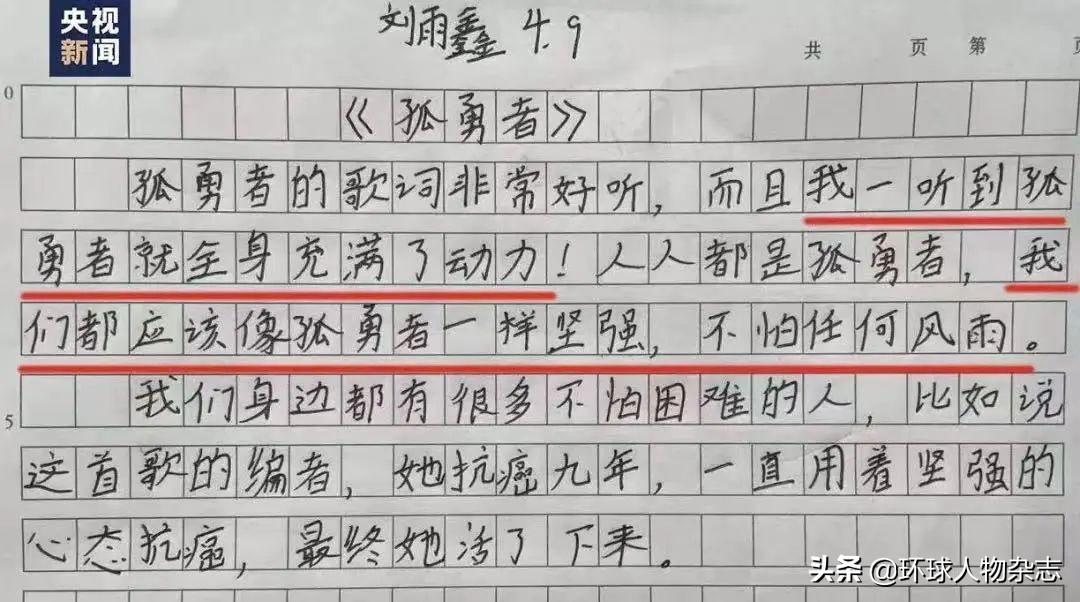 央视
新闻
刘雨鑫 4.9
共 页 第 页
0
《孤勇者》
孤勇者的歌词非常好听，而且我一听到孤
勇者就全身充满了动力！人人都是孤勇者，我
们都应该像孤勇者一样坚强，不怕任何风雨。
我们身边都有很多不怕困难的人，比如说
5
这首歌的编者，她抗癌九年，一直用着坚强的
心态抗癌，最终她活了下来。
头条 @环球人物杂志